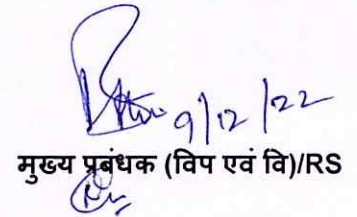 9/12/22
मुख्य प्रबंधक (विप एवं वि)/RS